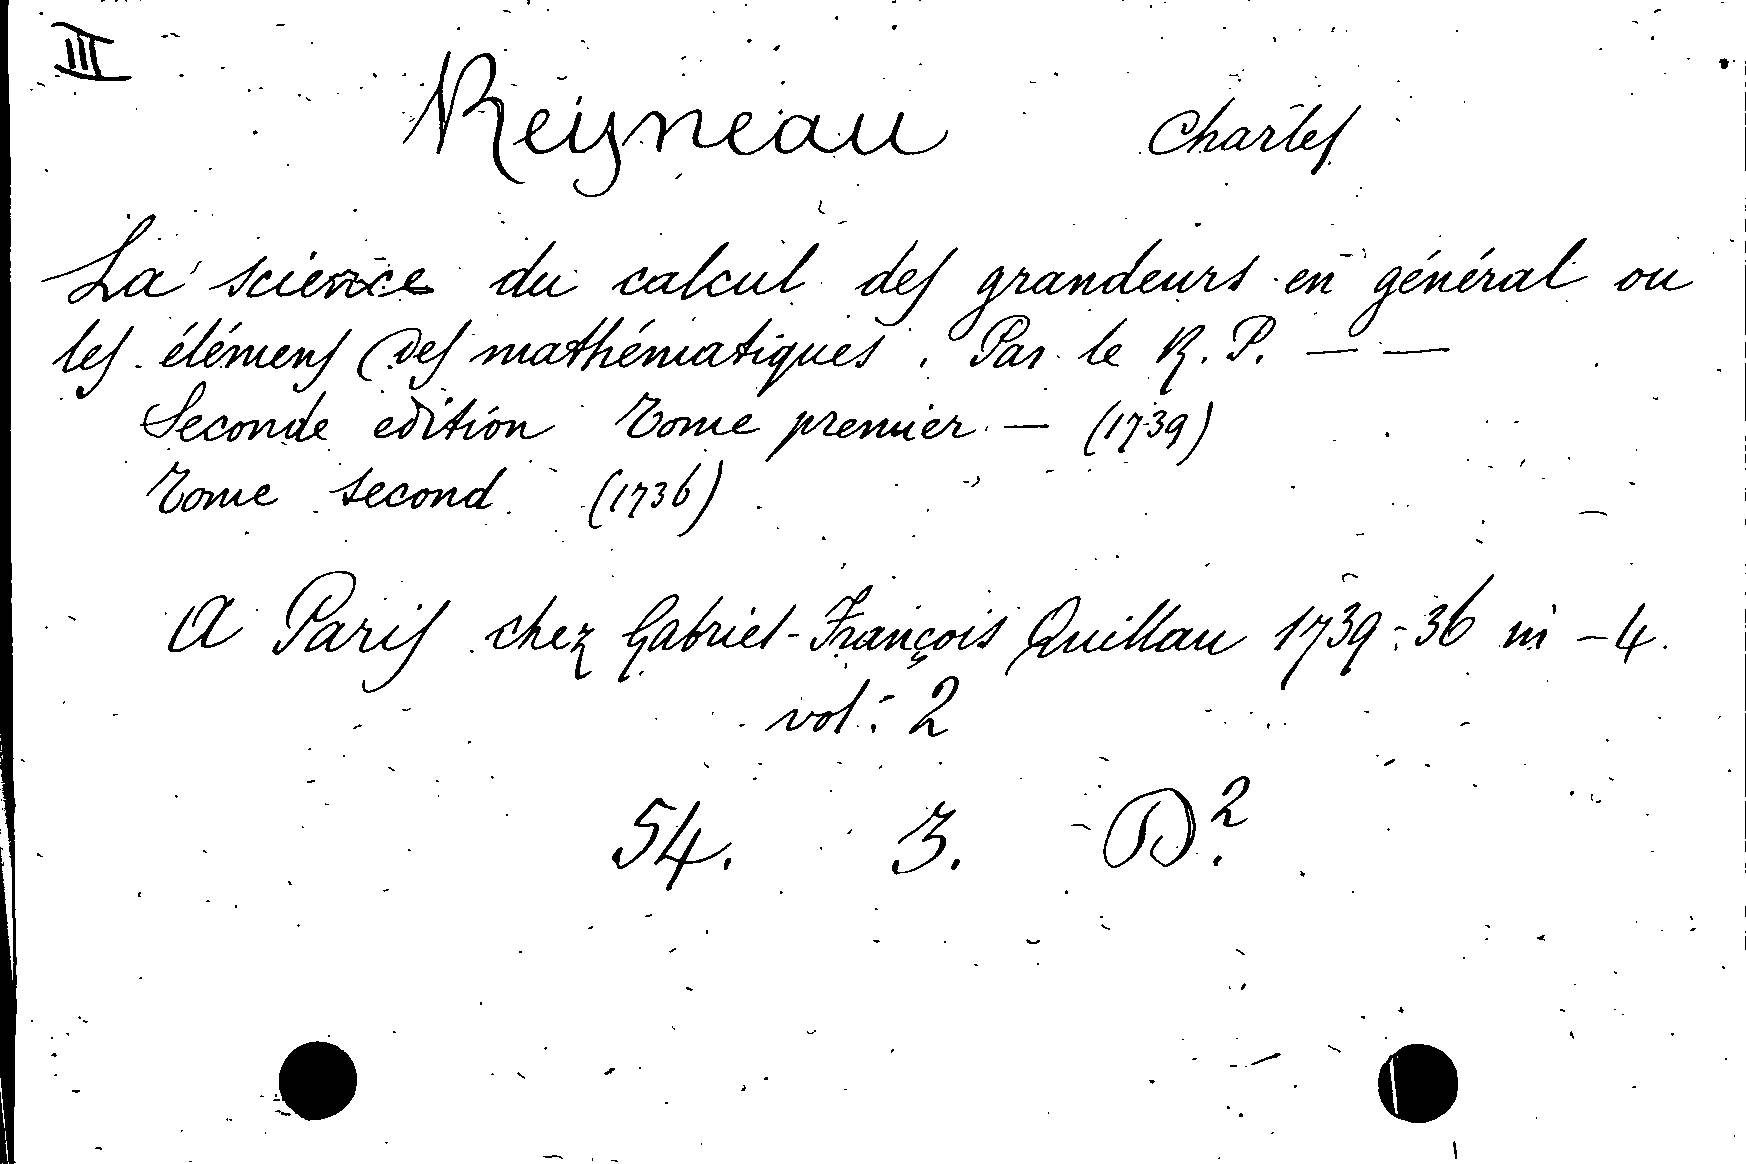 III
Reyneau Charles
La science du calcul des grandeurs en général ou
les élémens des mathématiques. Par le R. P. — —
Seconde edition Tome premier — (1739)
Tome second (1736)
A Paris chez Gabriel-François Quillau 1739-36 in -4.
vol: 2
54. 3. D².